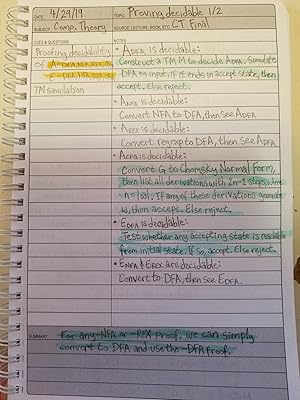 DATE: 4/29/19 TOPIC: Proving decidable 1/2
SUBJECT: Comp. Theory SOURCE: LECTURE, BOOK, ETC. CT Final
CUES & QUESTIONS NOTES
Proofing decidability
of A-DFA,NFA,REX,
E-DFA,NFA,REX,
TM simulation
• ADFA is decidable:
Construct a TM M to decide ADFA. Simulate
DFA on input; if it ends in accept state, then
accept. Else reject.
• ANFA is decidable:
Convert NFA to DFA, then see ADFA
• AREX is decidable:
Convert regexp to DFA, then see ADFA
• ACFG is decidable:
Convert G to Chomsky Normal Form,
then list all derivations with 2n-1 steps, where
n = |w|. If any of these derivations generate
w, then accept. Else reject.
• EDFA is decidable:
Test whether any accepting state is reachable
from initial state. If so, accept. Else reject.
• ENFA & EREX are decidable:
Convert to DFA, then see EDFA.
SUMMARY: For any -NFA or -REX proof, we can simply
convert to DFA and use the -DFA proof.